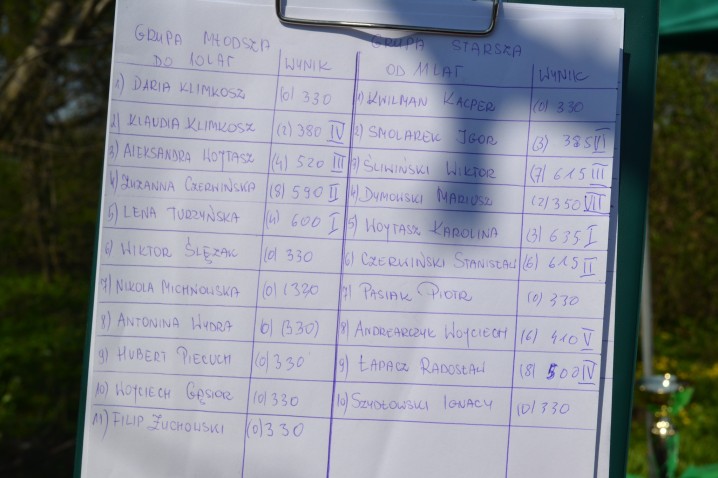 GRUPA MŁODSZA
DO 10 LAT WYNIK
1) DARIA KLIMKOSZ (0) 330
2) KLAUDIA KLIMKOSZ (2) 380 IV
3) ALEKSANDRA WOJTASZ (4) 520 III
4) ZUZANNA CZERWIŃSKA (8) 590 II
5) LENA TURZYŃSKA (4) 600 I
6) WIKTOR ŚLĘZAK (0) 330
7) NIKOLA MICHNOWSKA (0) (330
8) ANTONINA WYDRA (0) (330)
9) HUBERT PIEŁUCH (0) 330
10) WOJCIECH GĄSIOR (0) 330
11) FILIP ŻUCHOWSKI (0) 330
GRUPA STARSZA
OD 11 LAT WYNIK
1) KWILMAN KACPER (0) 330
2) SMOLAREK IGOR (3) 385 VI
3) ŚLIWIŃSKI WIKTOR (7) 615 III
4) DYMOWSKI MARIUSZ (2) 350 VII
5) WOJTASZ KAROLINA (3) 635 I
6) CZERWIŃSKI STANISŁAW (6) 615 II
7) PASIAK PIOTR (0) 330
8) ANDREARCZYK WOJCIECH (6) 410 V
9) ŁAPACZ RADOSŁAW (8) 500 IV
10) SZYDŁOWSKI IGNACY (0) 330